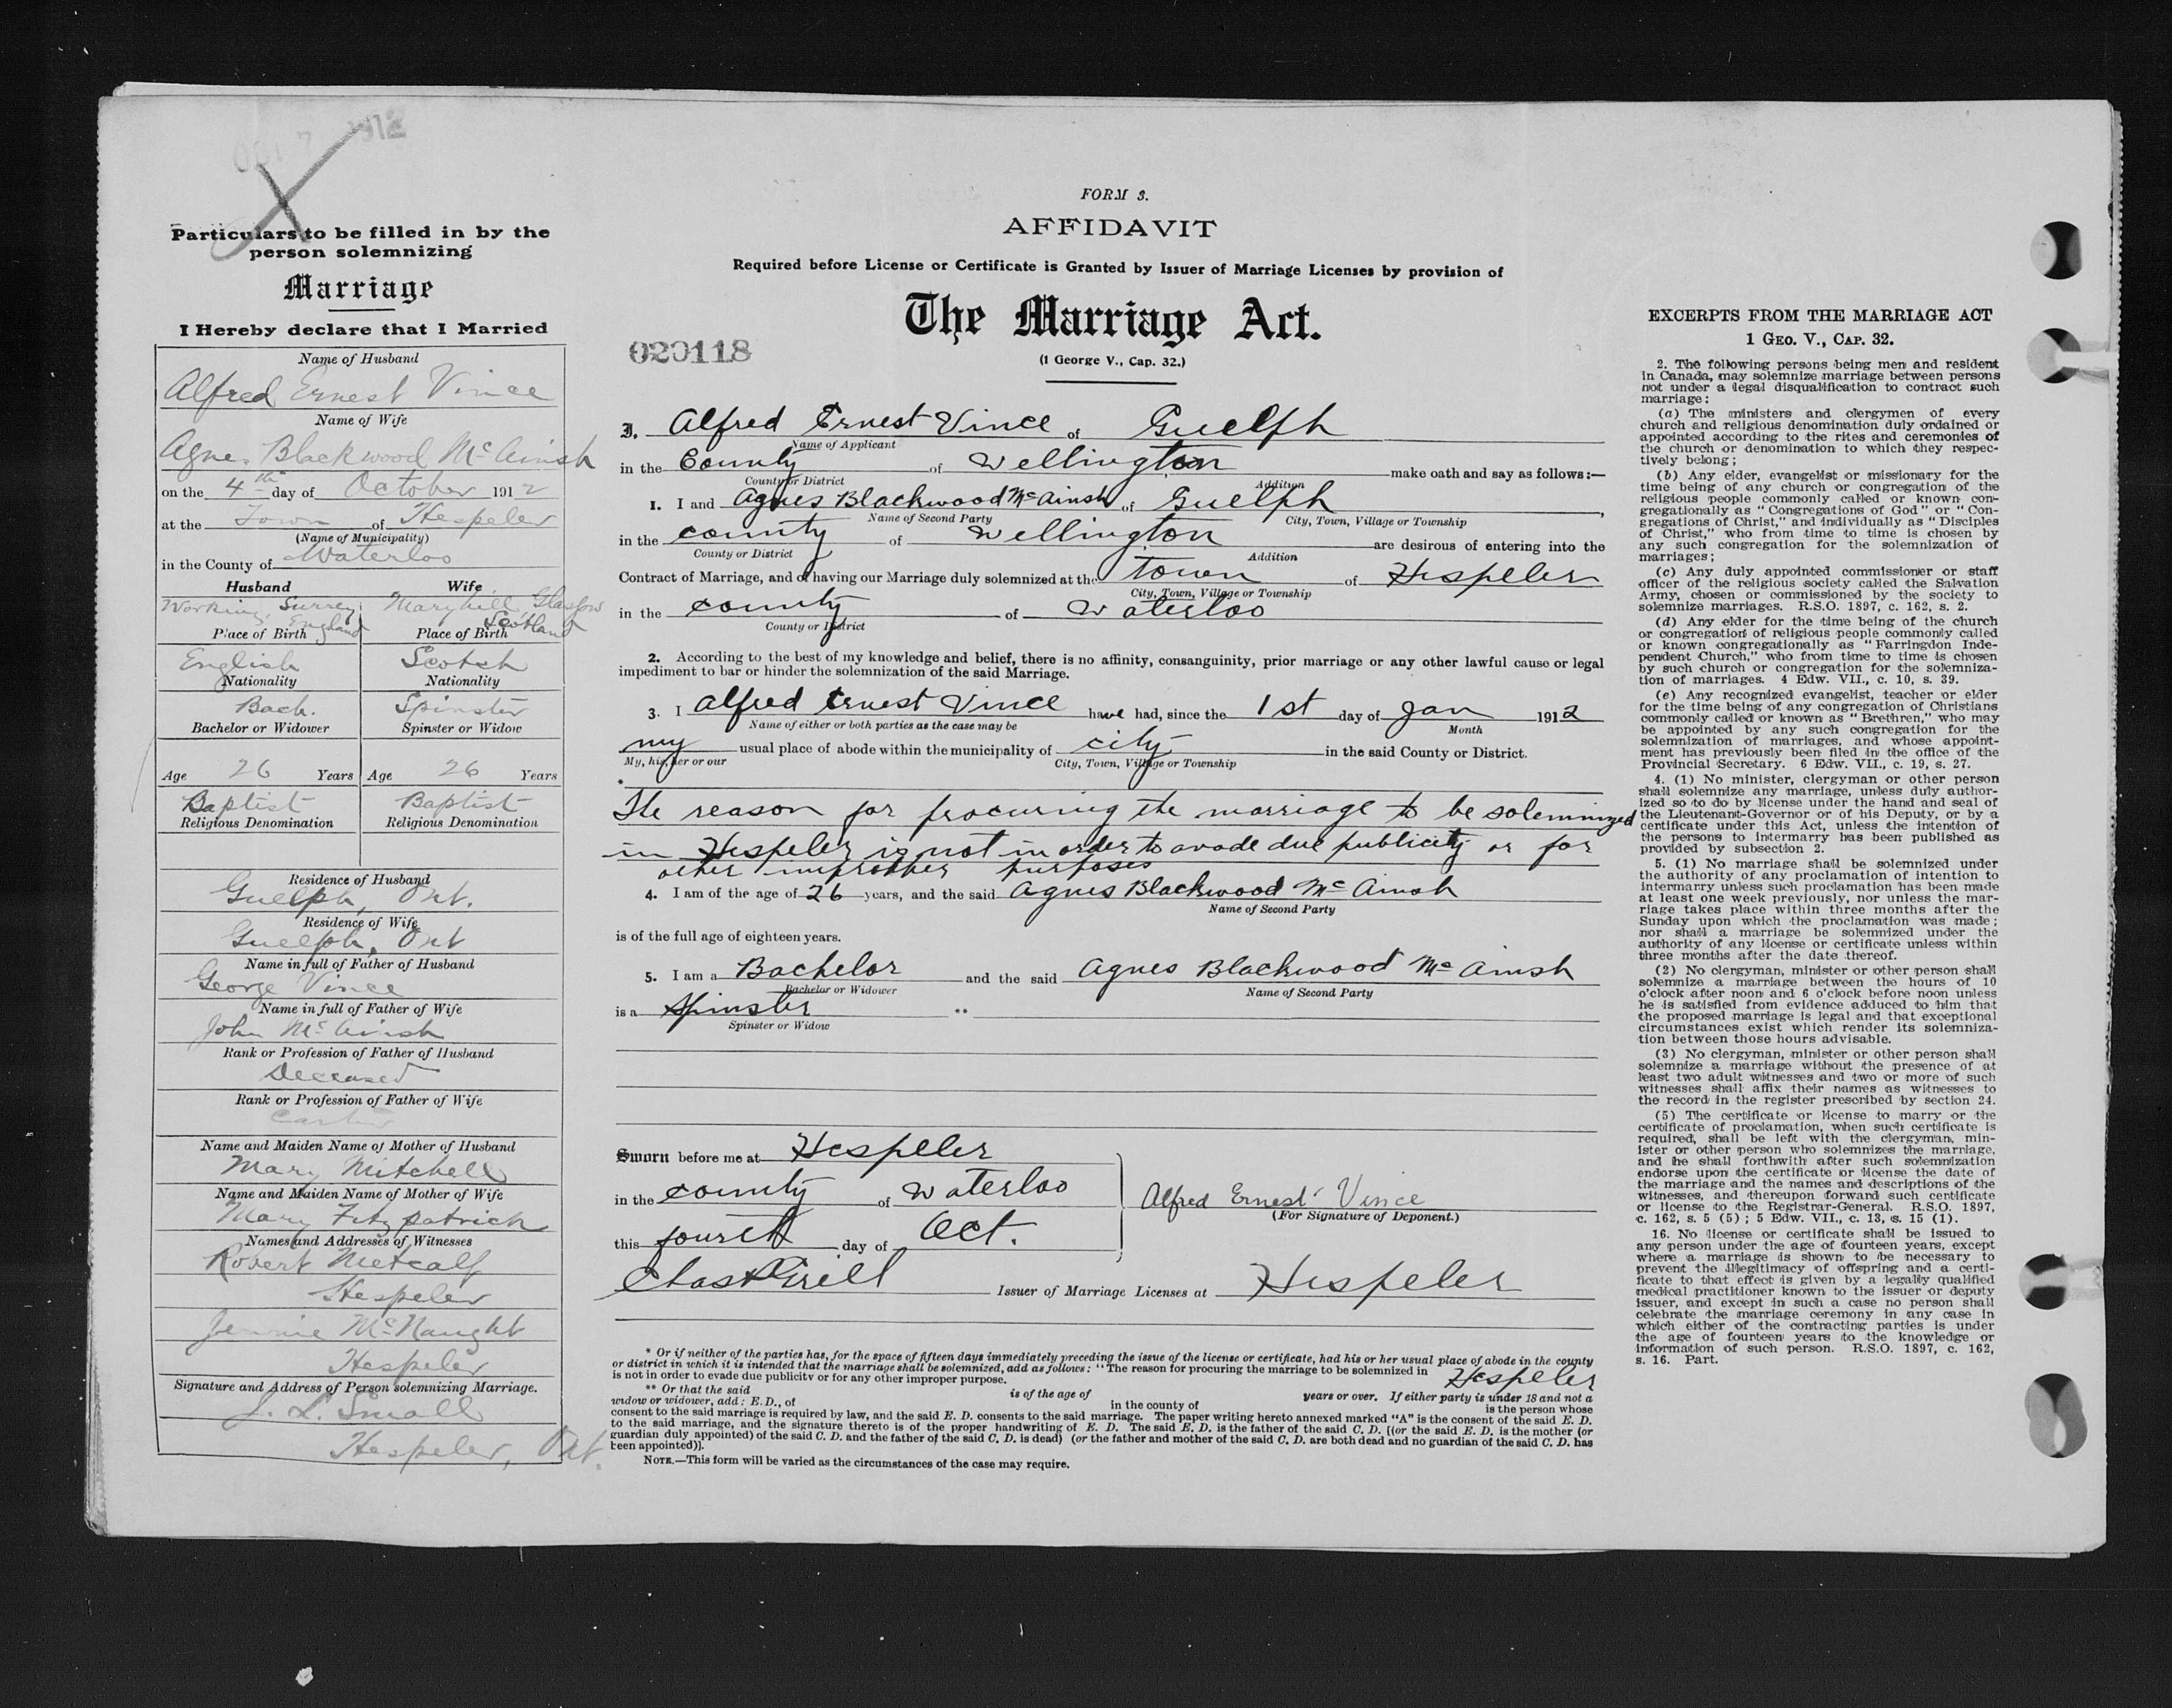 OCT 7 1912
Particulars to be filled in by the
person solemnizing
Marriage
I Hereby declare that I Married
Name of Husband
Alfred Ernest Vince
Name of Wife
Agnes Blackwood McAinsh
on the 4th day of October 1912
at the Town of Hespeler
(Name of Municipality)
in the County of Waterloo
Husband Wife
Working, Surrey, England Maryhill, Glasgow Scotland
Place of Birth Place of Birth
English Scotch
Nationality Nationality
Bach. Spinster
Bachelor or Widower Spinster or Widow
Age 26 Years Age 26 Years
Baptist Baptist
Religious Denomination Religious Denomination
Residence of Husband
Guelph, Ont.
Residence of Wife
Guelph, Ont
Name in full of Father of Husband
George Vince
Name in full of Father of Wife
John McAinsh
Rank or Profession of Father of Husband
Deceased
Rank or Profession of Father of Wife
Carter
Name and Maiden Name of Mother of Husband
Mary Mitchell
Name and Maiden Name of Mother of Wife
Mary Fitzpatrick
Names and Addresses of Witnesses
Robert Metcalf
Hespeler
Jennie McNaught
Hespeler
Signature and Address of Person solemnizing Marriage.
J. L. Small
Hespeler, Ont.
FORM 3.
AFFIDAVIT
Required before License or Certificate is Granted by Issuer of Marriage Licenses by provision of
The Marriage Act.
(1 George V., Cap. 32.)
020118
I, Alfred Ernest Vince of Guelph
Name of Applicant
in the County of Wellington make oath and say as follows:—
County or District Addition
1. I and Agnes Blackwood McAinsh of Guelph,
Name of Second Party City, Town, Village or Township
in the county of Wellington are desirous of entering into the
County or District Addition
Contract of Marriage, and of having our Marriage duly solemnized at the town of Hespeler
City, Town, Village or Township
in the county of Waterloo
County or District
2. According to the best of my knowledge and belief, there is no affinity, consanguinity, prior marriage or any other lawful cause or legal
impediment to bar or hinder the solemnization of the said Marriage.
3. I Alfred Ernest Vince have had, since the 1st day of Jan 1912
Name of either or both parties as the case may be Month
my usual place of abode within the municipality of city in the said County or District.
My, his, her or our City, Town, Village or Township
*
The reason for procuring the marriage to be solemnized
in Hespeler is not in order to avade due publicity or for
other improper purposes
4. I am of the age of 26 years, and the said Agnes Blackwood McAinsh
Name of Second Party
is of the full age of eighteen years.
5. I am a Bachelor and the said Agnes Blackwood McAinsh
Bachelor or Widower Name of Second Party
is a Spinster **
Spinster or Widow
Sworn before me at Hespeler
in the county of Waterloo
Alfred Ernest Vince
(For Signature of Deponent.)
this fourth day of Oct.
Chas Issuer of Marriage Licenses at Hespeler
* Or if neither of the parties has, for the space of fifteen days immediately preceding the issue of the license or certificate, had his or her usual place of abode in the county
or district in which it is intended that the marriage shall be solemnized, add as follows: "The reason for procuring the marriage to be solemnized in Hespeler
is not in order to evade due publicity or for any other improper purpose.
** Or that the said is of the age of years or over. If either party is under 18 and not a
widow or widower, add: E.D., of in the county of is the person whose
consent to the said marriage is required by law, and the said E. D. consents to the said marriage. The paper writing hereto annexed marked "A" is the consent of the said E. D.
to the said marriage, and the signature thereto is of the proper handwriting of E. D. The said E. D. is the father of the said C. D. [(or the said E. D. is the mother (or
guardian duly appointed) of the said C. D. and the father of the said C. D. is dead) (or the father and mother of the said C. D. are both dead and no guardian of the said C. D. has
been appointed)].
NOTE.—This form will be varied as the circumstances of the case may require.
EXCERPTS FROM THE MARRIAGE ACT
1 GEO. V., CAP. 32.
2. The following persons being men and resident
in Canada, may solemnize marriage between persons
not under a legal disqualification to contract such
marriage:
(a) The ministers and clergymen of every
church and religious denomination duly ordained or
appointed according to the rites and ceremonies of
the church or denomination to which they respec-
tively belong;
(b) Any elder, evangelist or missionary for the
time being of any church or congregation of the
religious people commonly called or known con-
gregationally as "Congregations of God" or "Con-
gregations of Christ," and individually as "Disciples
of Christ," who from time to time is chosen by
any such congregation for the solemnization of
marriages;
(c) Any duly appointed commissioner or staff
officer of the religious society called the Salvation
Army, chosen or commissioned by the society to
solemnize marriages. R.S.O. 1897, c. 162, s. 2.
(d) Any elder for the time being of the church
or congregation of religious people commonly called
or known congregationally as "Farringdon Inde-
pendent Church," who from time to time is chosen
by such church or congregation for the solemniza-
tion of marriages. 4 Edw. VII., c. 10, s. 39.
(e) Any recognized evangelist, teacher or elder
for the time being of any congregation of Christians
commonly called or known as "Brethren," who may
be appointed by any such congregation for the
solemnization of marriages, and whose appoint-
ment has previously been filed in the office of the
Provincial Secretary. 6 Edw. VII., c. 19, s. 27.
4. (1) No minister, clergyman or other person
shall solemnize any marriage, unless duly author-
ized so to do by license under the hand and seal of
the Lieutenant-Governor or of his Deputy, or by a
certificate under this Act, unless the intention of
the persons to intermarry has been published as
provided by subsection 2.
5. (1) No marriage shall be solemnized under
the authority of any proclamation of intention to
intermarry unless such proclamation has been made
at least one week previously, nor unless the mar-
riage takes place within three months after the
Sunday upon which the proclamation was made;
nor shall a marriage be solemnized under the
authority of any license or certificate unless within
three months after the date thereof.
(2) No clergyman, minister or other person shall
solemnize a marriage between the hours of 10
o'clock after noon and 6 o'clock before noon unless
he is satisfied from evidence adduced to him that
the proposed marriage is legal and that exceptional
circumstances exist which render its solemniza-
tion between those hours advisable.
(3) No clergyman, minister or other person shall
solemnize a marriage without the presence of at
least two adult witnesses and two or more of such
witnesses shall affix their names as witnesses to
the record in the register prescribed by section 24.
(5) The certificate or license to marry or the
certificate of proclamation, when such certificate is
required, shall be left with the clergyman, min-
ister or other person who solemnizes the marriage,
and he shall forthwith after such solemnization
endorse upon the certificate or license the date of
the marriage and the names and descriptions of the
witnesses, and thereupon forward such certificate
or license to the Registrar-General. R.S.O. 1897,
c. 162, s. 5 (5); 5 Edw. VII., c. 13, s. 15 (1).
16. No license or certificate shall be issued to
any person under the age of fourteen years, except
where a marriage is shown to be necessary to
prevent the illegitimacy of offspring and a certi-
ficate to that effect is given by a legally qualified
medical practitioner known to the issuer or deputy
issuer, and except in such a case no person shall
celebrate the marriage ceremony in any case in
which either of the contracting parties is under
the age of fourteen years to the knowledge or
information of such person. R.S.O. 1897, c. 162,
s. 16. Part.